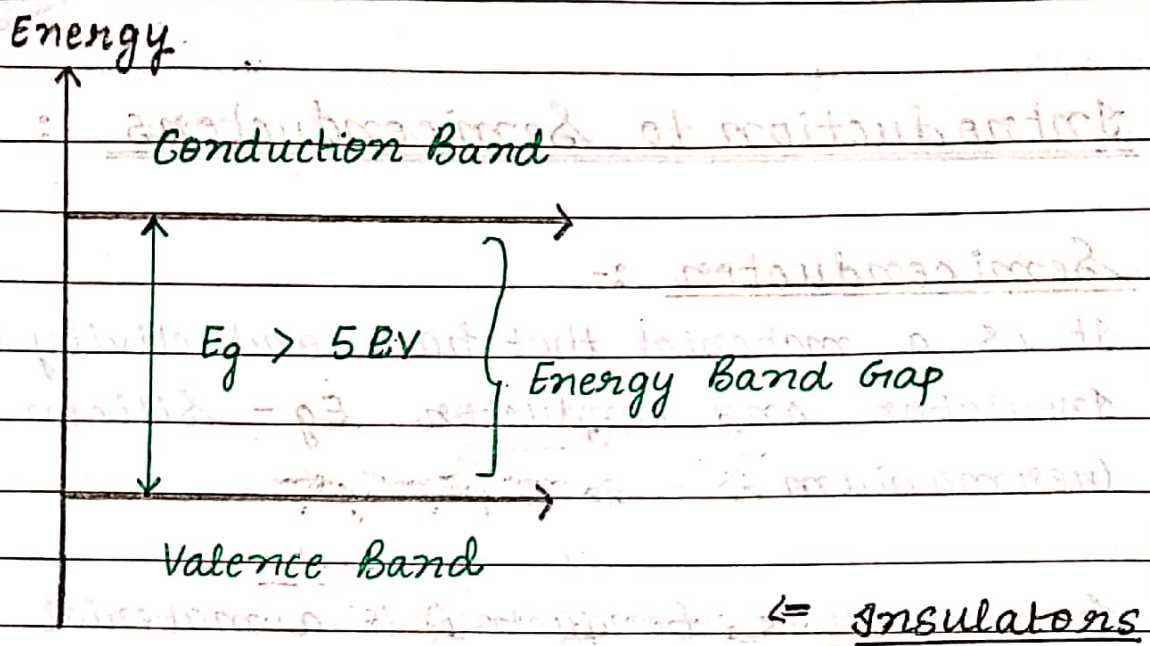 Energy
Conduction Band
Eg > 5 eV
Energy Band Gap
Valence Band
<= Insulators